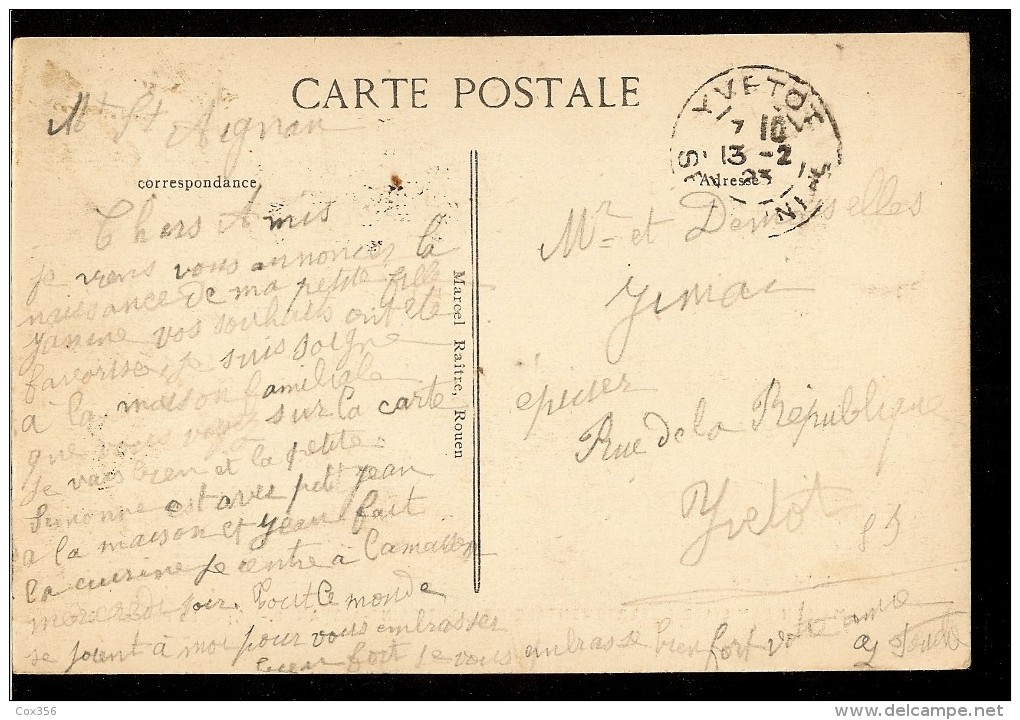 CARTE POSTALE
Mt St Aignan
YVETOT
7 10
13 -2
23
correspondance
Adresse
Chers Amis
je viens vous annoncer la
naissance de ma petite fille
Janine vos souhaits ont été
favorisé, je suis soigné
à la maison familiale
que vous voyez sur la carte
je vais bien et la petite
Simonne est avec petit jean
a la maison et jean fait
la cuisine je rentre à la maison
mercredi soir. Tout le monde
se joient à moi pour vous embrasser
bien fort je vous embrasse bien fort votre amie
Mr et Demoiselles
épicier
Rue de la République
Yvetot
Marcel Raître, Rouen
Cox356
delcampe.net